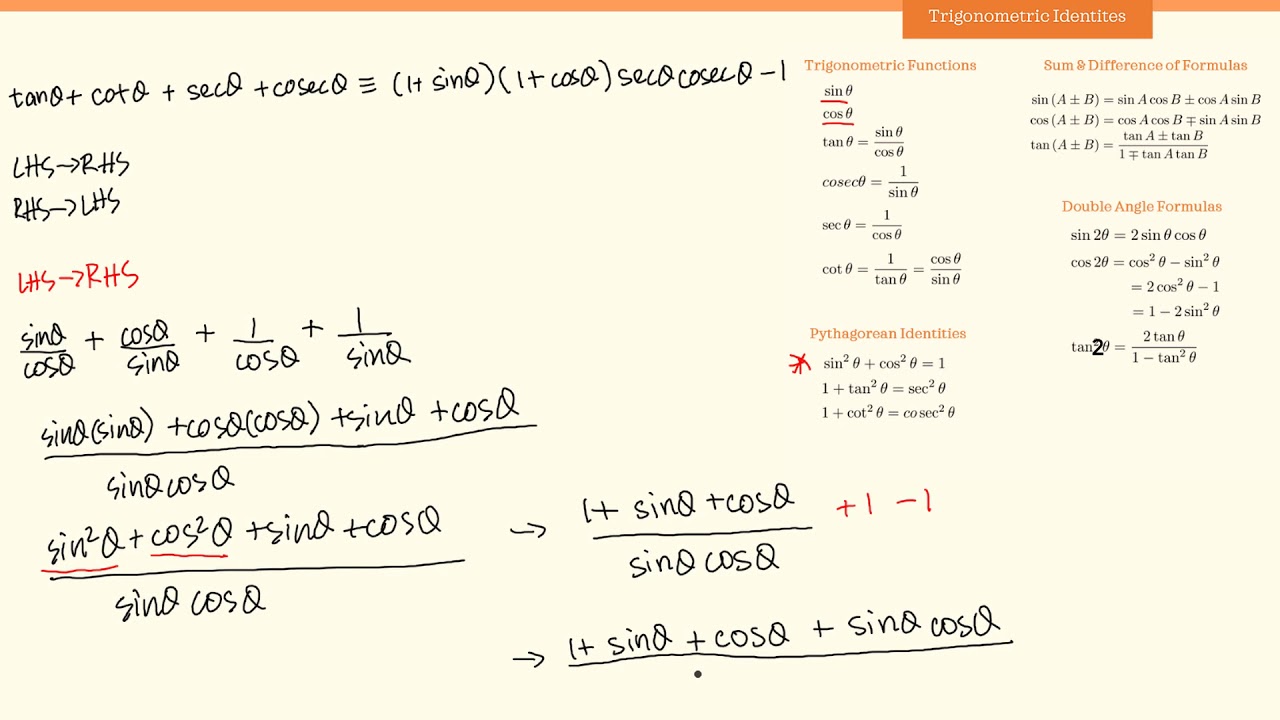 Trigonometric Identites
tanθ + cotθ + secθ + cosecθ ≡ (1+ sinθ)(1+cosθ)secθcosecθ -1
LHS→RHS
RHS→LHS
LHS→RHS
sinθ/cosθ + cosθ/sinθ + 1/cosθ + 1/sinθ
sinθ(sinθ) +cosθ(cosθ) +sinθ +cosθ
sinθcosθ
sin²θ + cos²θ +sinθ +cosθ
sinθ cosθ
→ 1+ sinθ +cosθ +1 -1
sinθ cosθ
→ 1+ sinθ + cosθ + sinθ cosθ
Trigonometric Functions
sin θ
cos θ
tan θ = sin θ/cos θ
cosecθ = 1/sin θ
sec θ = 1/cos θ
cot θ = 1/tan θ = cos θ/sin θ
Pythagorean Identities
* sin² θ + cos² θ = 1
1 + tan² θ = sec² θ
1 + cot² θ = cosec² θ
Sum & Difference of Formulas
sin (A ± B) = sin A cos B ± cos A sin B
cos (A ± B) = cos A cos B ∓ sin A sin B
tan (A ± B) = tan A ± tan B/1 ∓ tan A tan B
Double Angle Formulas
sin 2θ = 2 sin θ cos θ
cos 2θ = cos² θ − sin² θ
= 2 cos² θ − 1
= 1 − 2 sin² θ
tan 2θ = 2 tan θ/1 − tan² θ